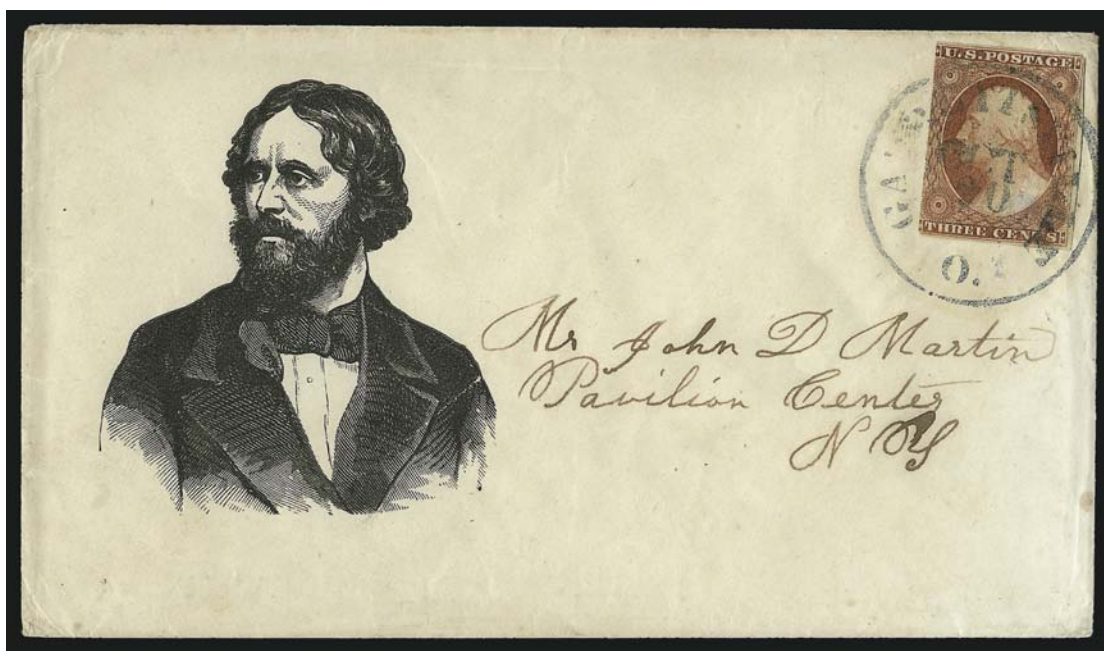 U.S. POSTAGE
THREE CENTS
O.
Mr John D Martin
Pavilion Center
N Y